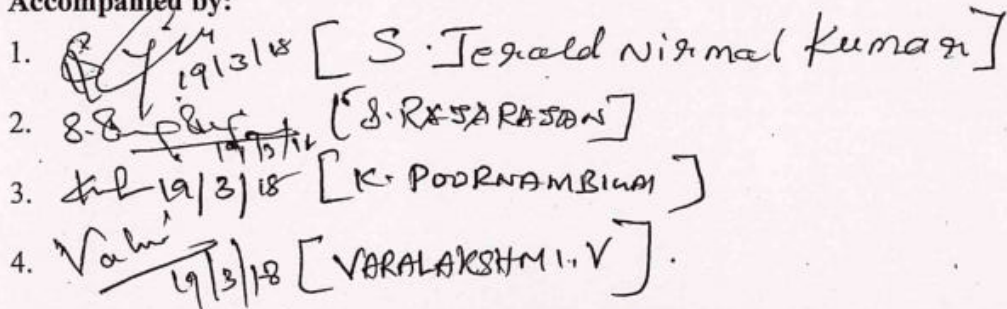 Accompanied by:
1. 19/3/18 [S. Jerald Nirmal Kumar]
2. 19/3/18 [S. RAJARAJAN]
3. 19/3/18 [K. POORNAMBIGAI]
4. 19/3/18 [VARALAKSHMI. V].